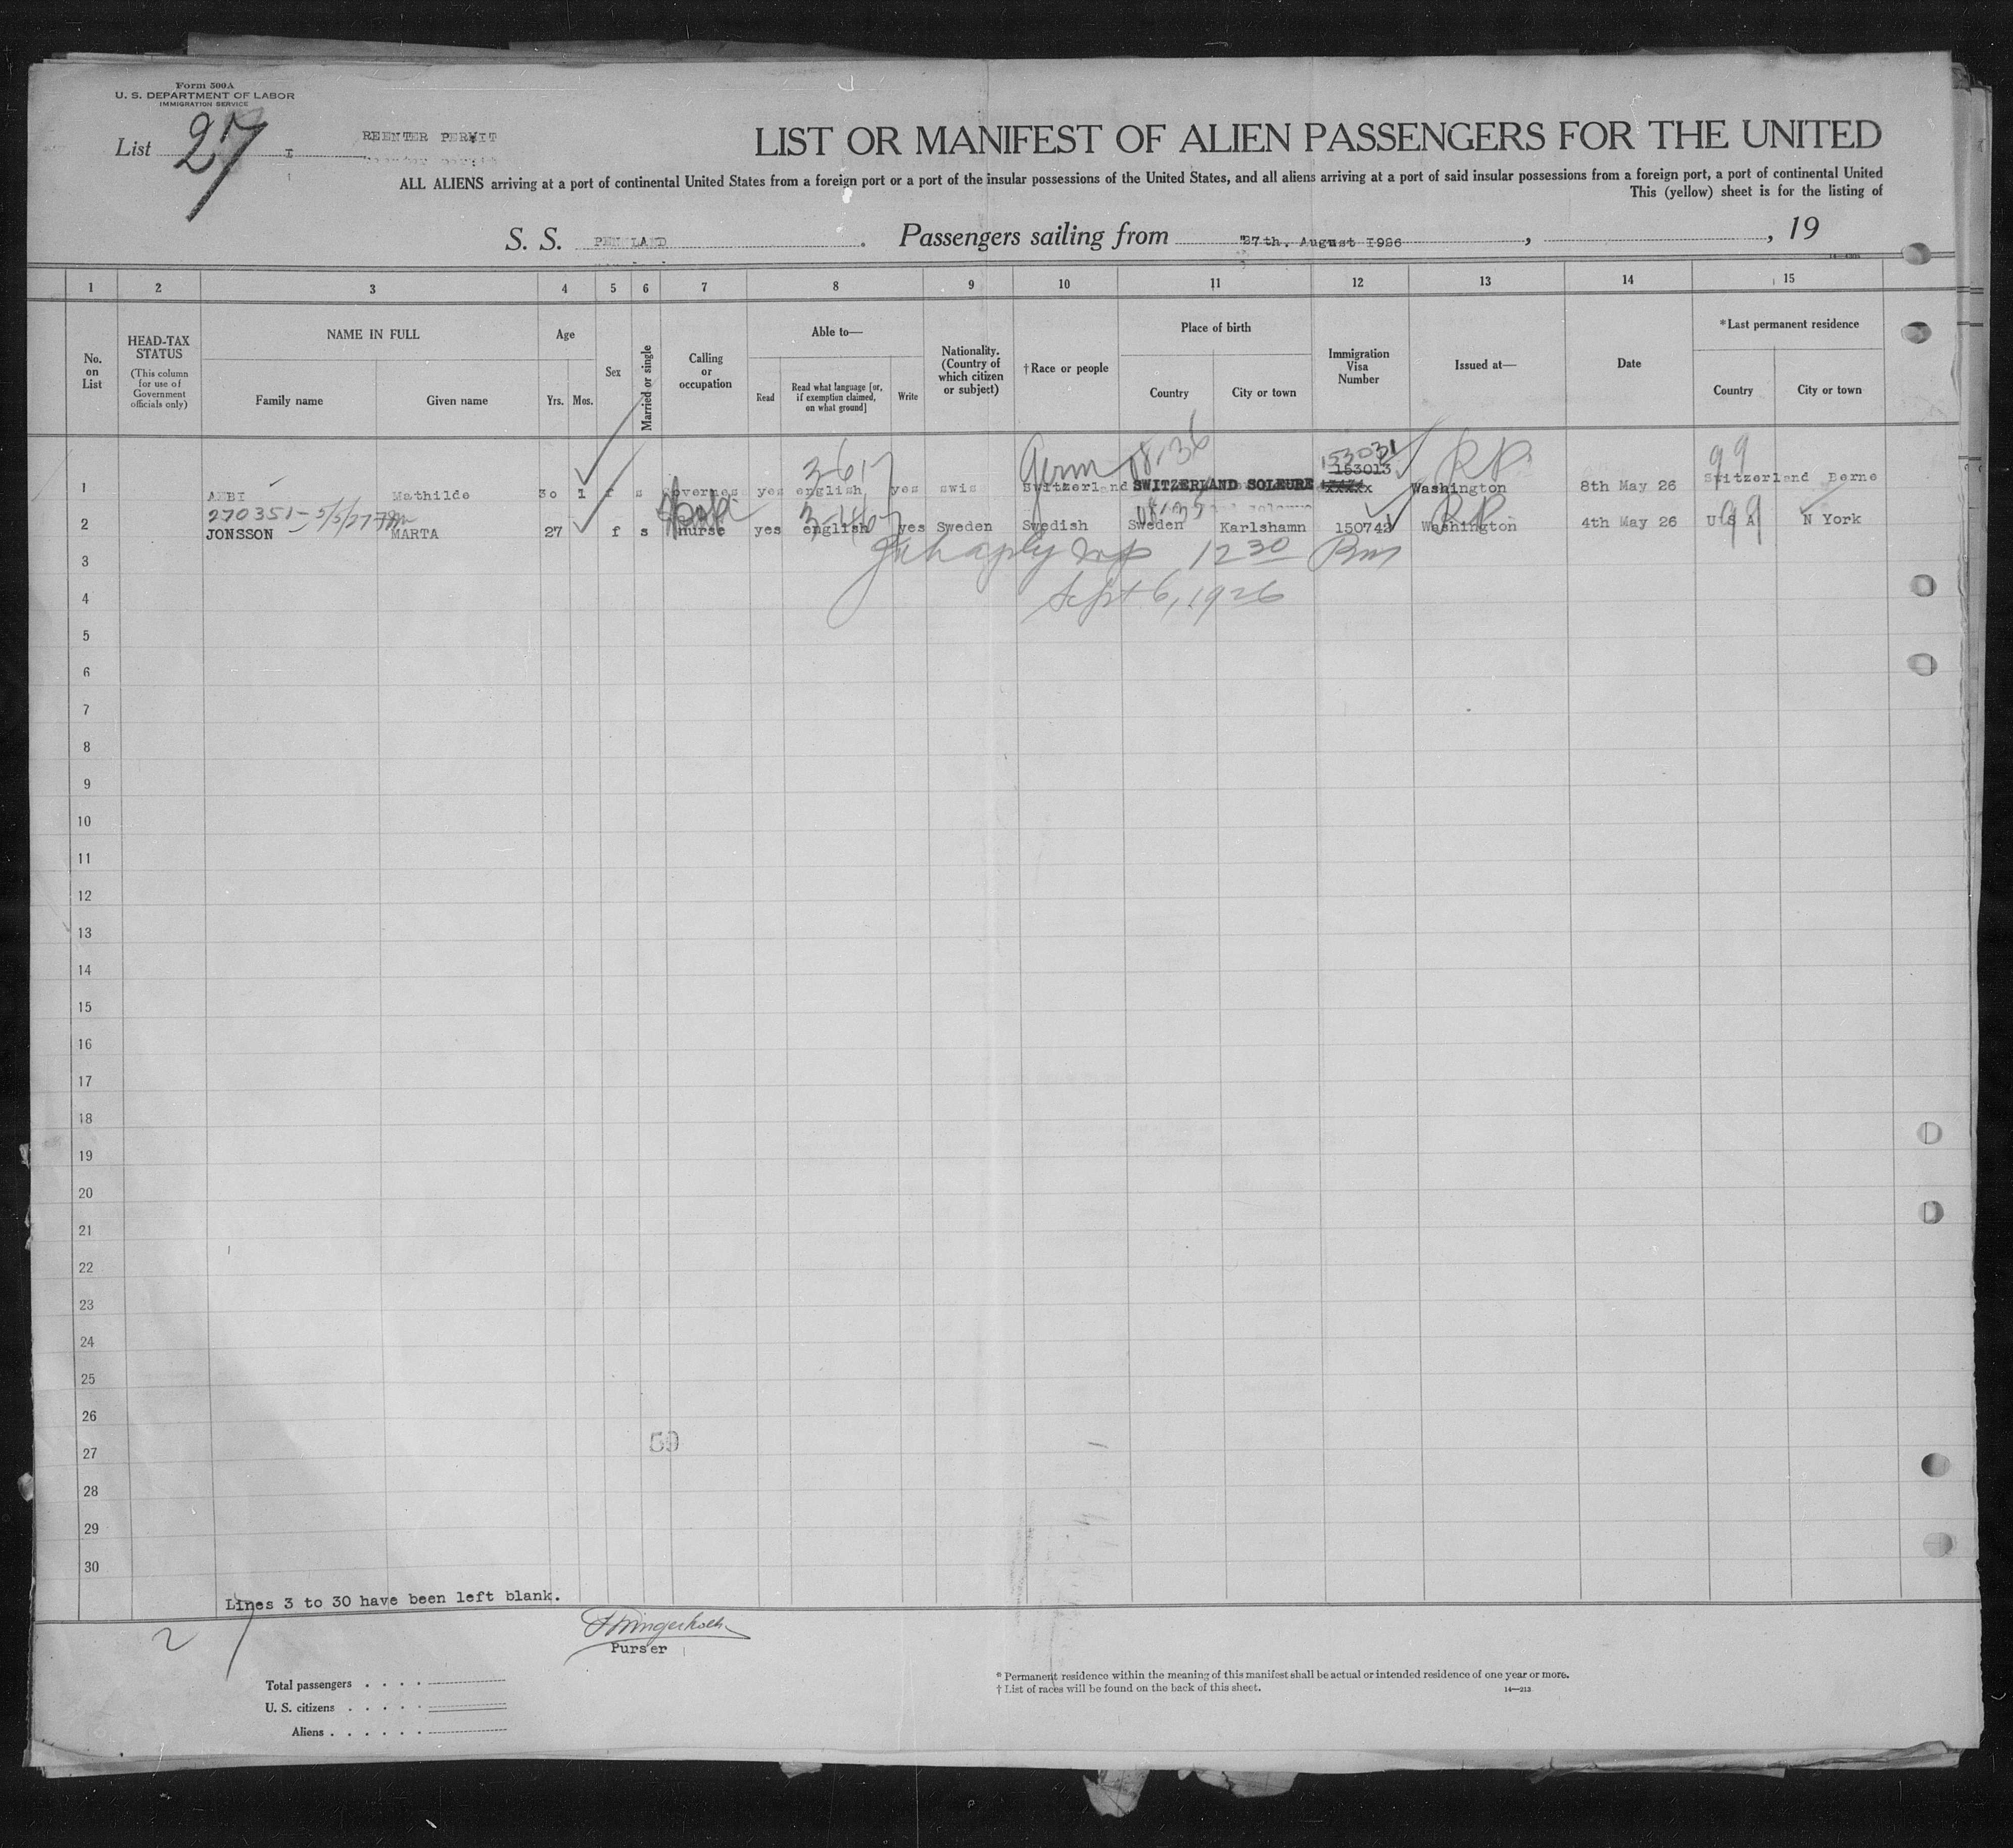 Form 500A
U. S. DEPARTMENT OF LABOR
IMMIGRATION SERVICE
List 27 I
REENTER PERMIT
LIST OR MANIFEST OF ALIEN PASSENGERS FOR THE UNITED
ALL ALIENS arriving at a port of continental United States from a foreign port or a port of the insular possessions of the United States, and all aliens arriving at a port of said insular possessions from a foreign port, a port of continental United
This (yellow) sheet is for the listing of
S. S. PENNLAND. Passengers sailing from 27th. August 1926, , 19
1 2 3 4 5 6 7 8 9 10 11 12 13 14 15
No. on List
HEAD-TAX STATUS
(This column for use of Government officials only)
NAME IN FULL
Family name Given name
Age
Yrs. Mos.
Sex
Married or single
Calling or occupation
Able to—
Read Read what language [or, if exemption claimed, on what ground] Write
Nationality. (Country of which citizen or subject)
†Race or people
Place of birth
Country City or town
Immigration Visa Number
Issued at—
Date
*Last permanent residence
Country City or town
3-617 Germ 08.36 153031 RP 99
153013
1 AEBI Mathilde 30 1 f s Governes yes english yes swis Switzerland SWITZERLAND SOLEURE Washington 8th May 26 Switzerland Berne
270351 - 5/5/27
2 JONSSON MARTA 27 f s nurse yes english yes Sweden Swedish Sweden Karlshamn 150742 Washington 4th May 26 U S A N York
RP 99
3 12 30
4 Sept 6, 1926
5
6
7
8
9
10
11
12
13
14
15
16
17
18
19
20
21
22
23
24
25
26
27
59
28
29
30
Lines 3 to 30 have been left blank.
2
Purser
Total passengers . . . .
U. S. citizens . . . . .
Aliens . . . . . .
* Permanent residence within the meaning of this manifest shall be actual or intended residence of one year or more.
† List of races will be found on the back of this sheet.
14—213